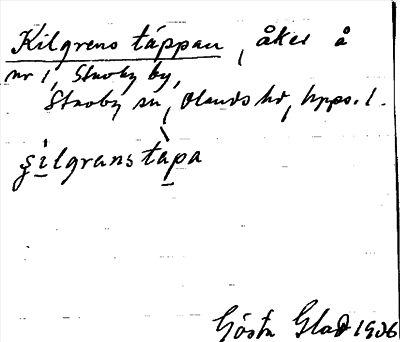 Kilgrens täppan, åker å
nr 1, Stavby by,
Stavby sn, Olands hd, Upps. l.
şilgranstàpa
Gösta Glad 1936